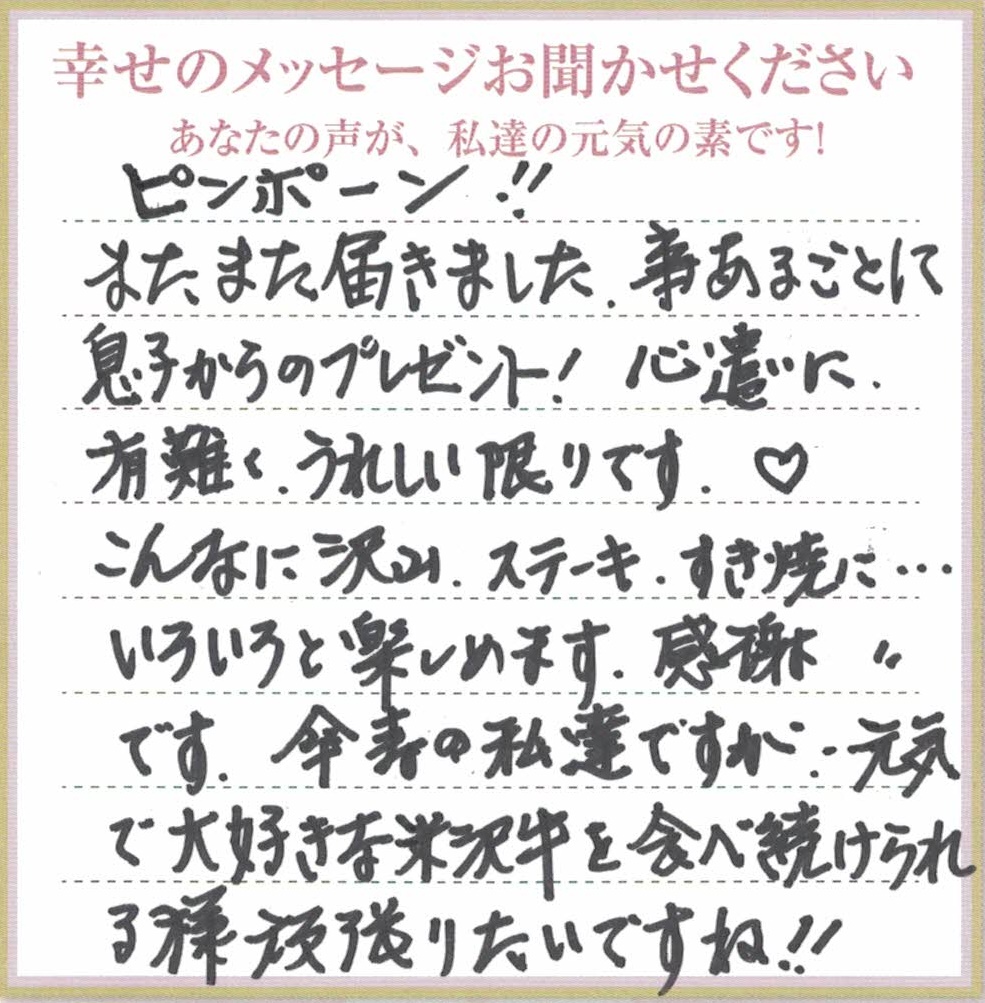 幸せのメッセージお聞かせください
あなたの声が、私達の元気の素です!
ピンポーン!!
また、また届きました。事あるごとに
息子からのプレゼント! 心遣いに.
有難く.うれしい限りです.♡
こんなに沢山.ステーキ.すき焼に…
いろいろと楽しめます.感謝〃
です.傘寿の私達ですが‥元気
で大好きな米沢牛を食べ続けられ
る様頑張りたいですね!!